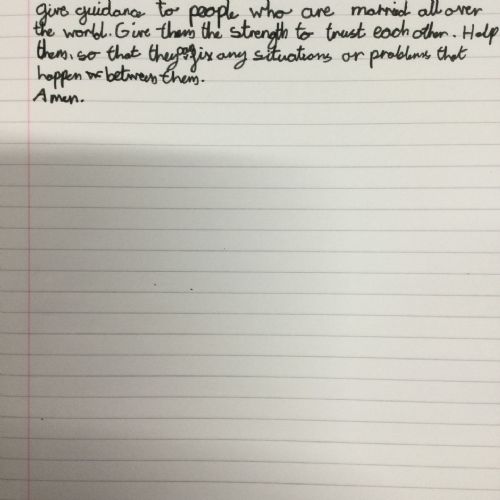 give guidance to people who are married all over
the world. Give them the strength to trust each other. Help
them, so that they fix any situations or problems that
happen between them.
Amen.